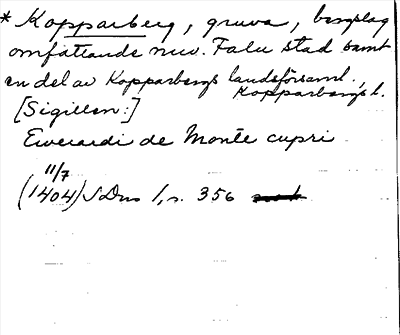 * Kopparberg, gruva, bergslag
omfattande nuv. Falu stad samt
en del av Kopparbergs landsförsaml.,
Kopparbergs l.
[Sigillen:]
Ewerardi de Monte cupri
11/7
(1404) SDns 1, s. 356